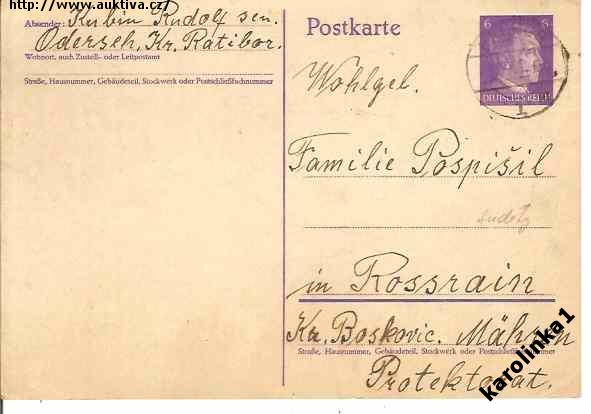 http://www.auktiva.cz/
Absender: Kubin Rudolf sen.
Odersch, Kr. Ratibor.
Wohnort, auch Zustell- oder Leitpostamt
Straße, Hausnummer, Gebäudeteil, Stockwerk oder Postschließfachnummer
Postkarte
6 6
DEUTSCHES REICH
Wohlgeb.
Familie Pospišil
sudety
in Rossrain
Kr. Boskovic. Mähren
Straße, Hausnummer, Gebäudeteil, Stockwerk oder Postschließfachnummer
Protektorat.
karolinka1